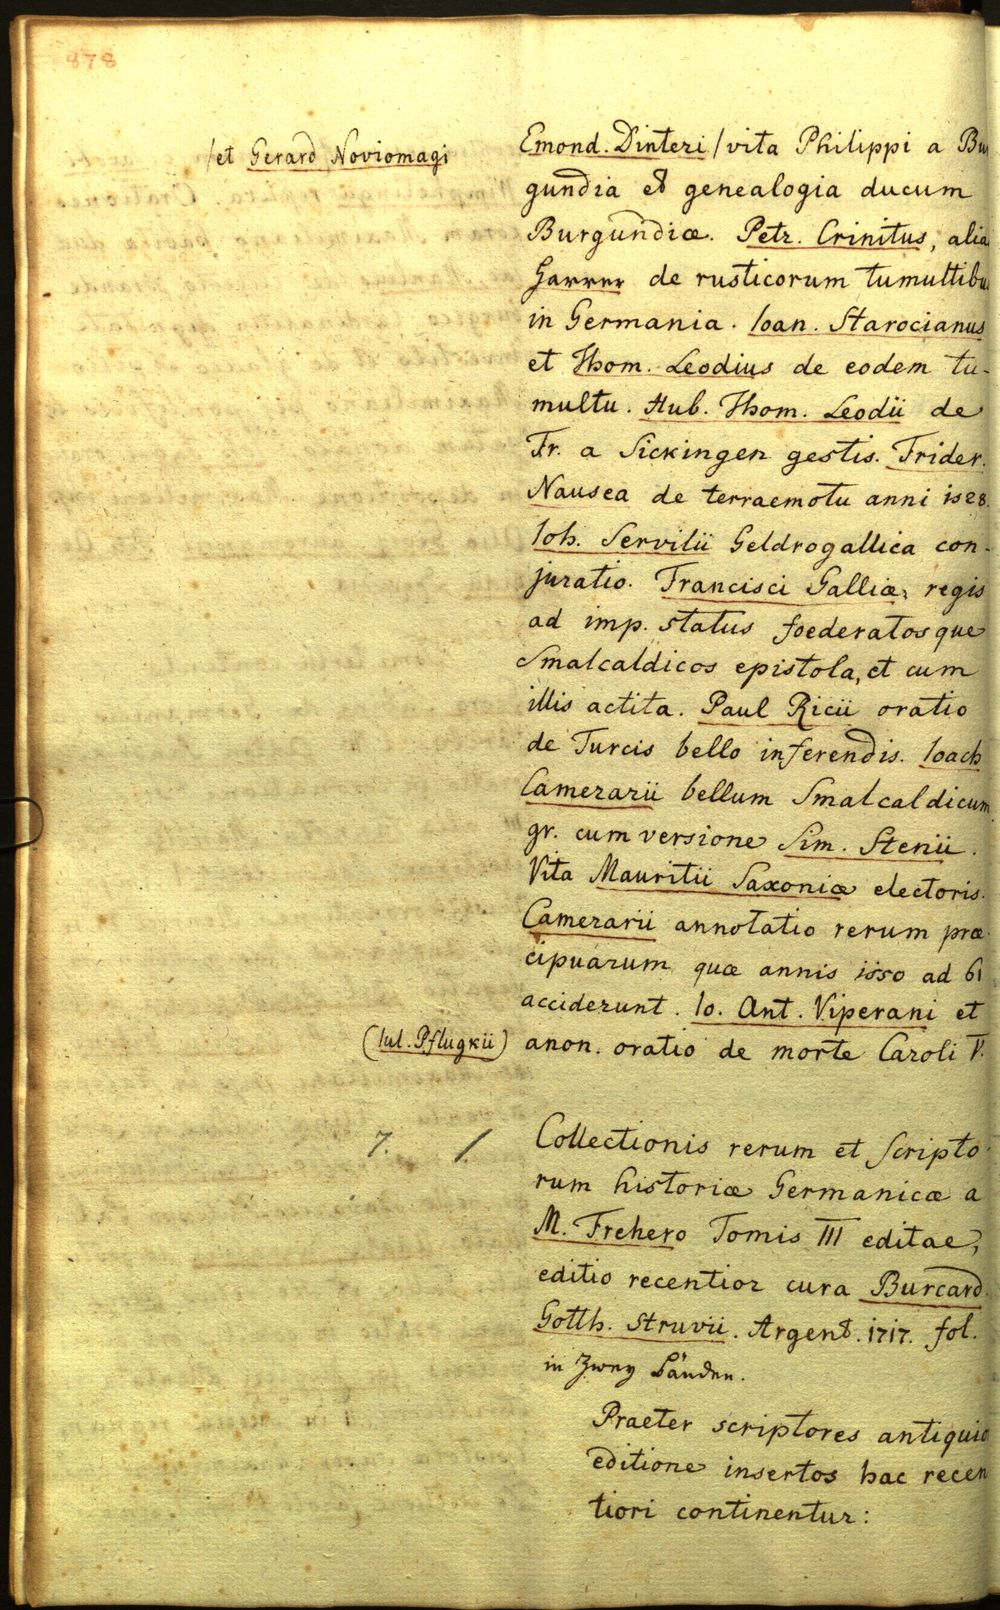 878
/et Gerard Noviomagi
Emond. Dinteri /vita Philippi a Bur
gundia et genealogia ducum
Burgundiæ. Petr. Crinitus, alia
de rusticorum tumultibu
in Germania. Ioan. Starocianus
et Thom. Leodius de eodem tu-
multu. Hub. Thom. Leodii de
Fr. a Sickingen gestis. Frider.
Nausea de terraemotu anni 1528.
Ioh. Servilii Geldrogallica con-
juratio. Francisci Galliæ, regis
ad imp. status foederatosque
Smalcaldicos epistola, et cum
illis actita. Paul Ricii oratio
de Turcis bello inferendis. Ioach
Camerarii bellum Smalcaldicum
gr. cum versione Sim. Stenii.
Vita Mauritii Saxoniæ electoris.
Camerarii annotatio rerum præ-
cipuarum quæ annis 1550 ad 61
acciderunt. Io. Ant. Viperani et
(Iul. Pflugkii) anon. oratio de morte Caroli V.
7. 1. Collectionis rerum et Scripto-
rum historiæ Germanicæ a
M. Frehero Tomis III editae,
editio recentior cura Burcard.
Gotth. Struvii. Argent. 1717. fol.
in Zwey Bänden.
Praeter scriptores antiquio
editione insertos hac recen
tiori continentur: